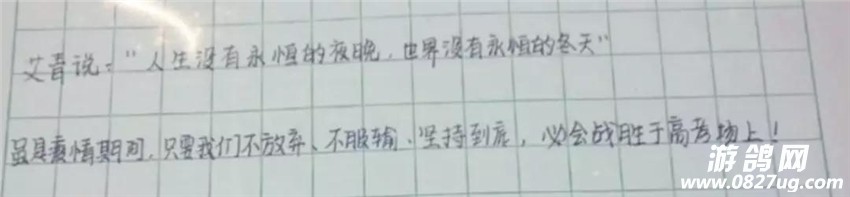 艾青说："人生没有永恒的夜晚，世界没有永恒的冬天"
虽是疫情期间，只要我们不放弃、不服输、坚持到底，必会战胜于高考场上！
游鸽网
www.0827ug.com